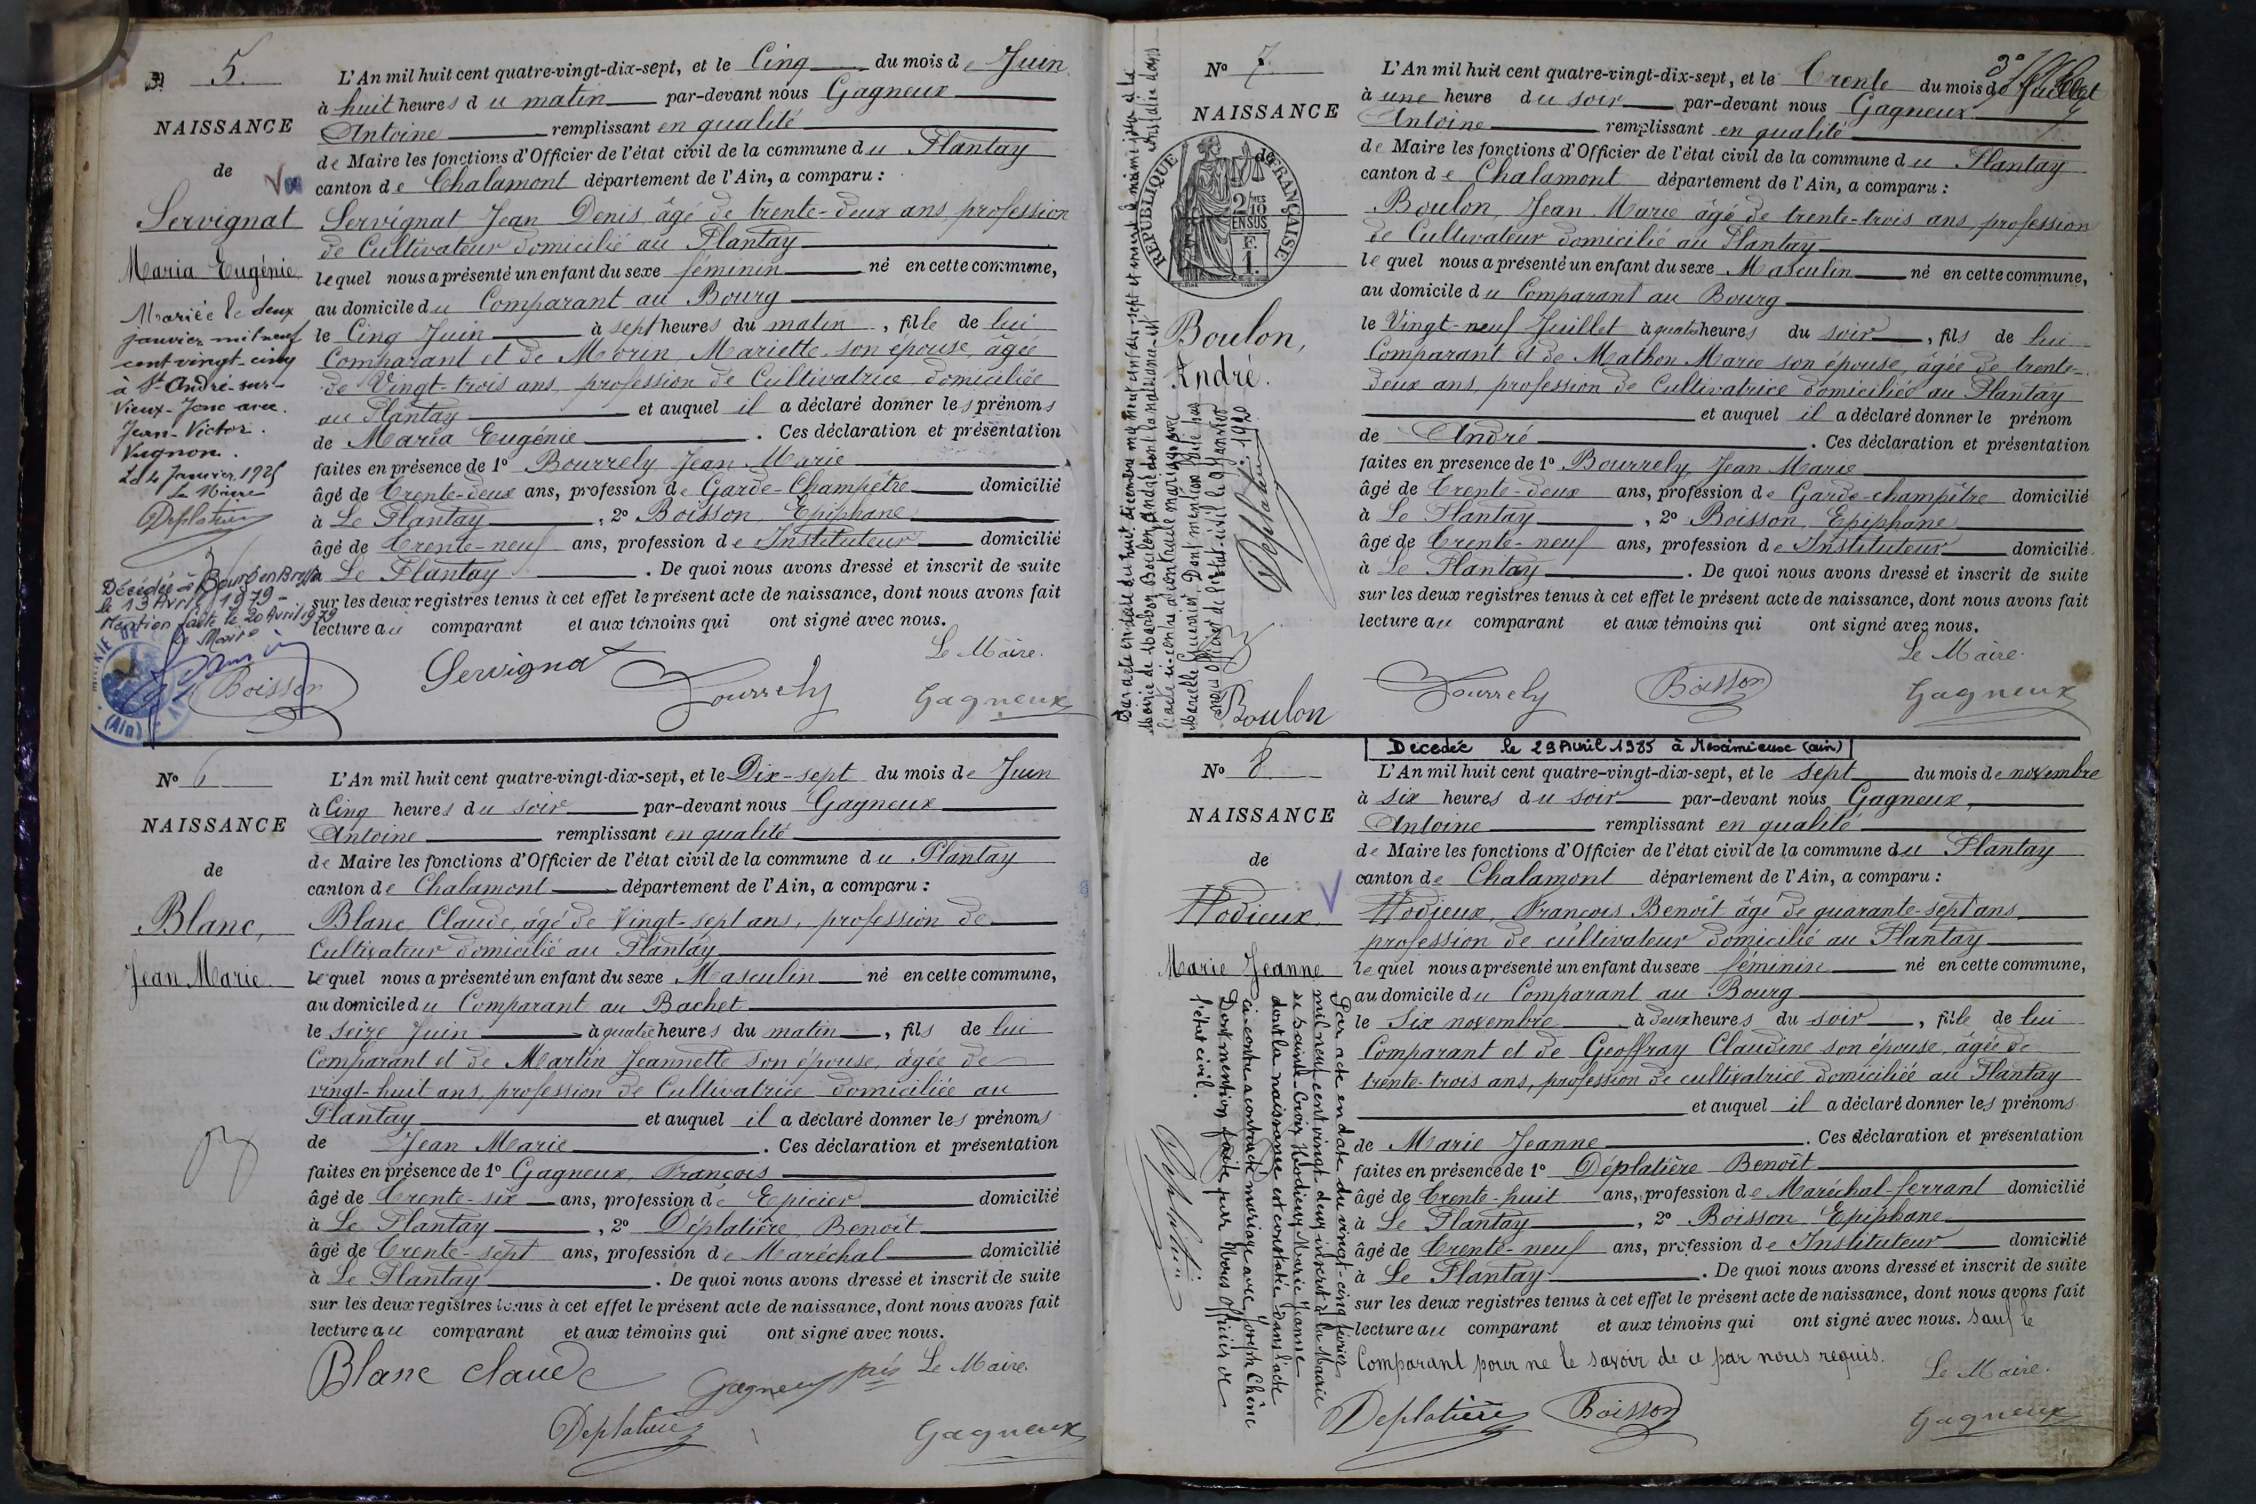 5.
NAISSANCE
de
Servignat
Maria Eugénie
Mariée le deux
janvier mil neuf
cent vingt-cinq
à St André-sur-
Vieux-Jonc avec
Jean-Victor
Vugnon.
Le 4 Janvier 1925
Le Maire
Deplatière
Décédée à Bourg en Bresse
le 13 Avril 1979-
Mention faite le 20 Avril 1979
Le Maire
L'An mil huit cent quatre-vingt-dix-sept, et le Cinq du mois de Juin
à huit heures du matin par-devant nous Gagneux
Antoine remplissant en qualité
de Maire les fonctions d'Officier de l'état civil de la commune du Plantay
canton de Chalamont département de l'Ain, a comparu :
Servignat Jean Denis âgé de trente-deux ans, profession
de Cultivateur domicilié au Plantay
lequel nous a présenté un enfant du sexe féminin né en cette commune,
au domicile du Comparant au Bourg
le Cinq Juin à sept heures du matin, fille de lui
Comparant et de Morin Mariette son épouse, âgée
de Vingt-trois ans, profession de Cultivatrice domiciliée
au Plantay et auquel il a déclaré donner les prénoms
de Maria Eugénie. Ces déclaration et présentation
faites en présence de 1º Bourrely Jean-Marie
âgé de trente-deux ans, profession de Garde-Champêtre domicilié
à Le Plantay, 2º Boisson Epiphane
âgé de trente-neuf ans, profession de Instituteur domicilié
à Le Plantay. De quoi nous avons dressé et inscrit de suite
sur les deux registres tenus à cet effet le présent acte de naissance, dont nous avons fait
lecture au comparant et aux témoins qui ont signé avec nous.
Le Maire.
Boisson Servignat Bourrely Gagneux
Nº 6
NAISSANCE
de
Blanc,
Jean Marie
L'An mil huit cent quatre-vingt-dix-sept, et le Dix-sept du mois de Juin
à Cinq heures du soir par-devant nous Gagneux
Antoine remplissant en qualité
de Maire les fonctions d'Officier de l'état civil de la commune du Plantay
canton de Chalamont département de l'Ain, a comparu :
Blanc, Claude, âgé de Vingt-sept ans, profession de
Cultivateur domicilié au Plantay
lequel nous a présenté un enfant du sexe Masculin né en cette commune,
au domicile du Comparant au Bachet
le seize Juin à quatre heures du matin, fils de lui
Comparant et de Martin Jeannette son épouse, âgée de
vingt-huit ans, profession de Cultivatrice domiciliée au
Plantay et auquel il a déclaré donner les prénoms
de Jean Marie. Ces déclaration et présentation
faites en présence de 1º Gagneux, François
âgé de trente-six ans, profession de Epicier domicilié
à Le Plantay, 2º Déplatière, Benoît
âgé de trente-sept ans, profession de Maréchal domicilié
à Le Plantay. De quoi nous avons dressé et inscrit de suite
sur les deux registres tenus à cet effet le présent acte de naissance, dont nous avons fait
lecture au comparant et aux témoins qui ont signé avec nous.
Blanc claude Gagneux fçois Le Maire.
Deplatière Gagneux
Nº 7
NAISSANCE
de
RÉPUBLIQUE FRANÇAISE
2/10 EN SUS
F. 1.
Boulon,
André.
Par acte en date du huit décembre mil neuf cent dix-neuf et inscrit le même jour à la
Mairie de Marboz Boulon, André dont la naissance est constatée dans
l'acte ci-contre a contracté mariage avec
Marcelle Guerrier. Dont mention faite par
nous Officier de l'état-civil le 9 Janvier 1920
Deplatière
L'An mil huit cent quatre-vingt-dix-sept, et le trente du mois de Juillet
à une heure du soir par-devant nous Gagneux
Antoine remplissant en qualité
de Maire les fonctions d'Officier de l'état civil de la commune du Plantay
canton de Chalamont département de l'Ain, a comparu :
Boulon, Jean Marie âgé de trente-trois ans, profession
de Cultivateur domicilié au Plantay
lequel nous a présenté un enfant du sexe Masculin né en cette commune,
au domicile du Comparant au Bourg
le Vingt-neuf Juillet à quatre heures du soir, fils de lui
Comparant et de Mathon Marie son épouse, âgée de trente-
deux ans, profession de Cultivatrice domiciliée au Plantay
et auquel il a déclaré donner le prénom
de André. Ces déclaration et présentation
faites en présence de 1º Bourrely, Jean Marie
âgé de trente-deux ans, profession de Garde-champêtre domicilié
à Le Plantay, 2º Boisson, Epiphane
âgé de trente-neuf ans, profession de Instituteur domicilié
à Le Plantay. De quoi nous avons dressé et inscrit de suite
sur les deux registres tenus à cet effet le présent acte de naissance, dont nous avons fait
lecture au comparant et aux témoins qui ont signé avec nous.
Le Maire.
Boulon Bourrely Boisson Gagneux
Decedée le 29 Avril 1985 à Meximieux (ain)
Nº 8
NAISSANCE
de
Hodieux
Marie Jeanne
Par acte en date du vingt-cinq février
mil neuf cent vingt-deux inscrit à la Mairie
de Sainte-Croix Hodieux Marie Jeanne
dont la naissance est constatée dans l'acte
ci-contre a contracté mariage avec Joseph Chêne
Dont mention faite par Nous officier de
l'état civil.
Deplatière
L'An mil huit cent quatre-vingt-dix-sept, et le sept du mois de novembre
à six heures du soir par-devant nous Gagneux,
Antoine remplissant en qualité
de Maire les fonctions d'Officier de l'état civil de la commune du Plantay
canton de Chalamont département de l'Ain, a comparu :
Hodieux, François Benoît âgé de quarante-sept ans
profession de cultivateur domicilié au Plantay
lequel nous a présenté un enfant du sexe féminin né en cette commune,
au domicile du Comparant au Bourg
le Six novembre à deux heures du soir, fille de lui
Comparant et de Geoffray Claudine son épouse, âgée de
trente-trois ans, profession de cultivatrice domiciliée au Plantay
et auquel il a déclaré donner les prénoms
de Marie Jeanne. Ces déclaration et présentation
faites en présence de 1º Déplatière Benoît
âgé de trente-huit ans, profession de Maréchal-ferrant domicilié
à Le Plantay, 2º Boisson Epiphane
âgé de trente-neuf ans, profession de Instituteur domicilié
à Le Plantay. De quoi nous avons dressé et inscrit de suite
sur les deux registres tenus à cet effet le présent acte de naissance, dont nous avons fait
lecture au comparant et aux témoins qui ont signé avec nous. sauf le
Comparant pour ne le savoir de ce par nous requis.
Le Maire.
Deplatière Boisson Gagneux